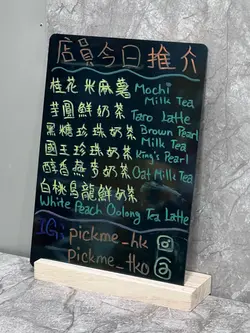 店員今日推介
桂花水麻薯 Mochi Milk Tea
芋圓鮮奶茶 Taro Latte
黑糖珍珠奶茶 Brown Pearl
國王珍珠奶茶 King's Pearl
醇香燕麥奶茶 Oat Milk Tea
白桃烏龍鮮奶茶
White Peach Oolong Tea Latte
IG: pickme_hk
pickme_tko